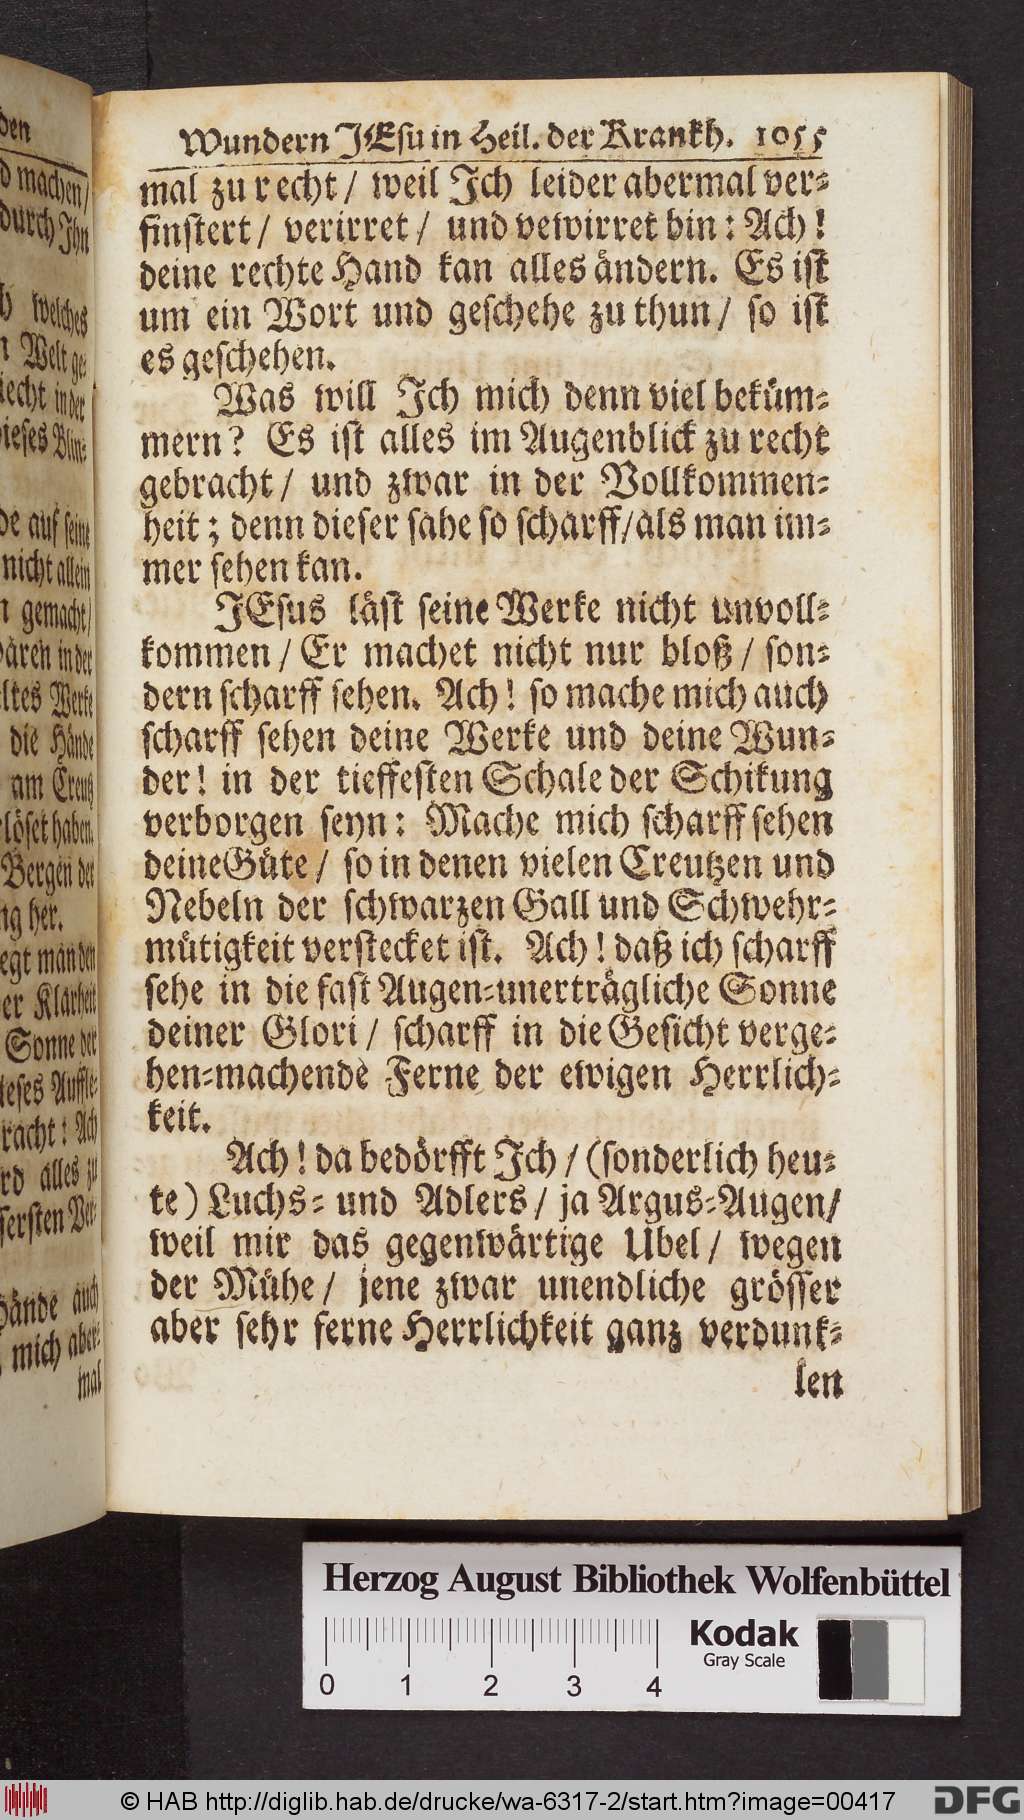 den
d machen/
durch Ihn
welches
n Welt ge-
recht in der
dieses Blin-
de auf seine
nicht allein
n gemacht/
wären in der
altes Werke
die Hände
am Creutz
rlöset haben.
Bergen der
ng her.
egt man den
er Klarheit
Sonne der
ieses Auffle-
racht! Ach
rd alles zu
sersten Ver-
Hände auch
mich aber-
mal
Wundern JEsu in Heil. der Krankh. 1055
mal zu recht/ weil Ich leider abermal ver-
finstert/ verirret/ und vewirret bin: Ach!
deine rechte Hand kan alles ändern. Es ist
um ein Wort und geschehe zu thun/ so ist
es geschehen.
Was will Ich mich denn viel beküm-
mern? Es ist alles im Augenblick zu recht
gebracht/ und zwar in der Vollkommen-
heit; denn dieser sahe so scharff/als man im-
mer sehen kan.
JEsus läst seine Werke nicht unvoll-
kommen/ Er machet nicht nur bloß/ son-
dern scharff sehen. Ach! so mache mich auch
scharff sehen deine Werke und deine Wun-
der! in der tieffesten Schale der Schikung
verborgen seyn: Mache mich scharff sehen
deine Güte/ so in denen vielen Creutzen und
Nebeln der schwarzen Gall und Schwehr-
mütigkeit verstecket ist. Ach! daß ich scharff
sehe in die fast Augen-unerträgliche Sonne
deiner Glori/ scharff in die Gesicht verge-
hen-machende Ferne der ewigen Herrlich-
keit.
Ach! da bedörfft Ich/ (sonderlich heu-
te) Luchs- und Adlers/ ja Argus-Augen/
weil mir das gegenwärtige Ubel/ wegen
der Mühe/ jene zwar unendliche grösser
aber sehr ferne Herrlichkeit ganz verdunk-
len
Herzog August Bibliothek Wolfenbüttel
0 1 2 3 4
Kodak
Gray Scale
© HAB http://diglib.hab.de/drucke/wa-6317-2/start.htm?image=00417
DFG